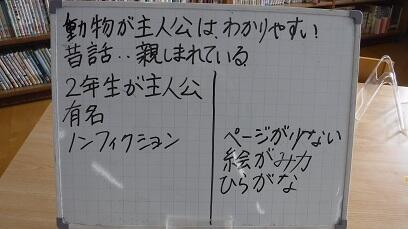 動物が主人公は、わかりやすい
昔話‥親しまれている
2年生が主人公
有名
ノンフィクション
ページが少ない
絵がみ力
ひらがな